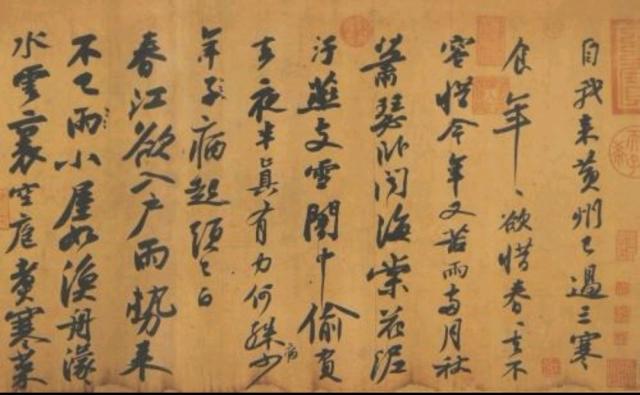 自我来黄州已過三寒
食年〻欲惜春〻去不
容惜今年又苦雨兩月秋
蕭瑟卧聞海棠花泥
汙燕支雪闇中偷負
去夜半真有力何殊少病
年子病起頭已白
春江欲入户雨勢来
不已雨小屋如漁舟濛〻
水雲裏空庖煮寒菜